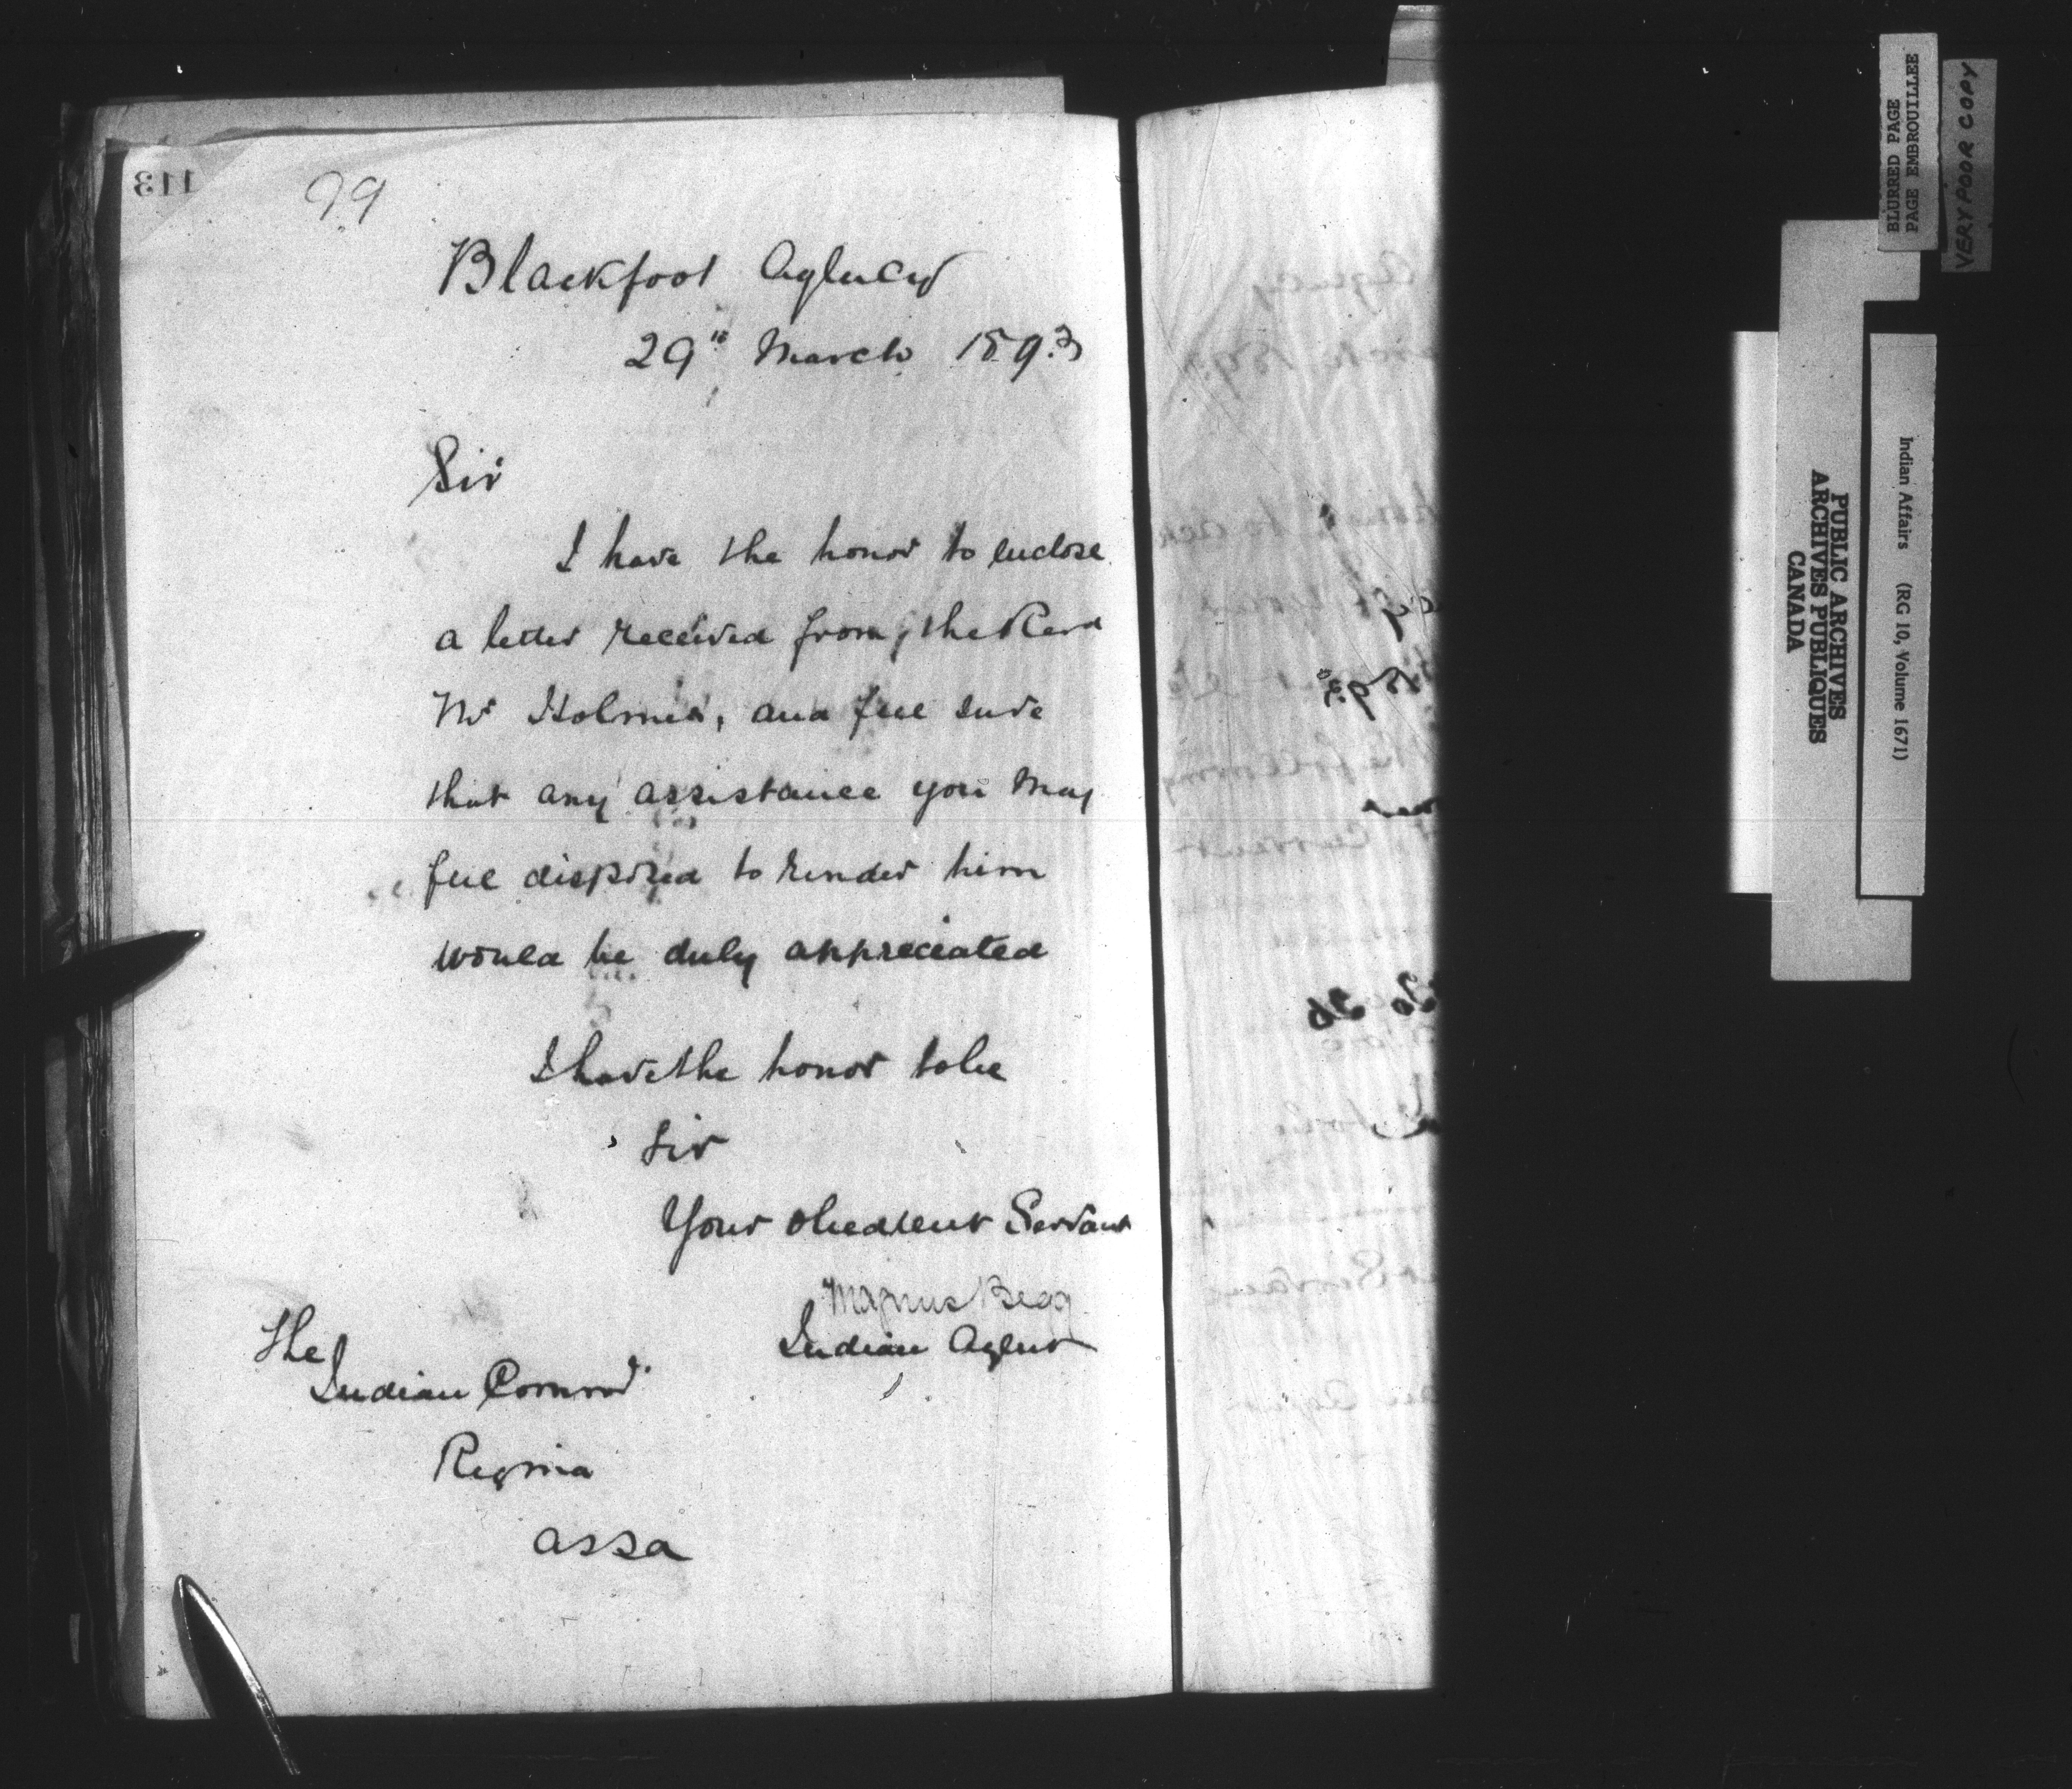 113
99
Blackfoot Agency
29th March 1893
Sir
I have the honor to enclose
a letter received from the Revd
Mr Holmes, and feel sure
that any assistance you may
feel disposed to render him
would be duly appreciated
I have the honor to be
Sir
Your obedient Servant
Magnus Begg
Indian Agent
The
Indian Commr
Regina
Assa
BLURRED PAGE
PAGE EMBROUILLEE
VERY POOR COPY
PUBLIC ARCHIVES
ARCHIVES PUBLIQUES
CANADA
Indian Affairs (RG 10, Volume 1671)